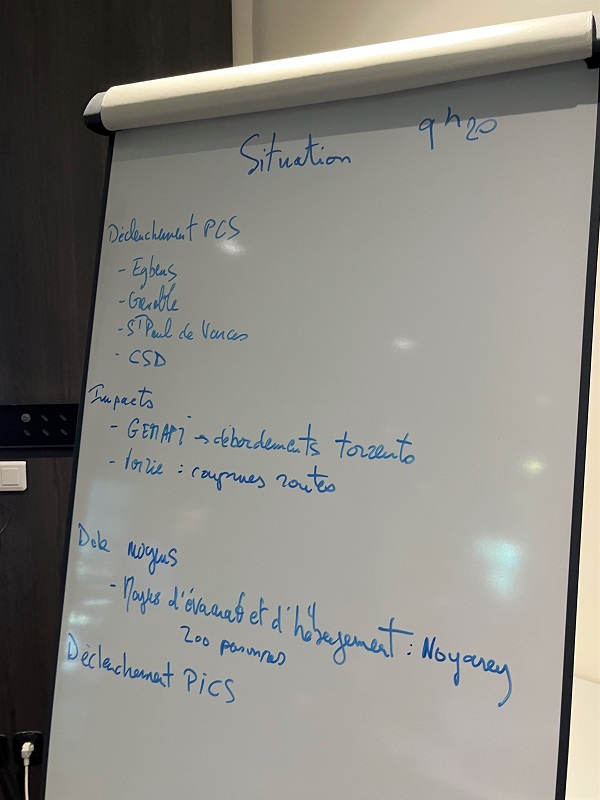 Situation 9h20
Déclenchement PCS
- Eybens
- Grenoble
- St Paul de Varces
- CSD
Impacts
- GEMAPI → débordements torrents
- Voirie : coupures routes
moyens
- Moyens d'évacuat et d'hébergement : Noyarey
200 personnes
Déclenchement PiCS